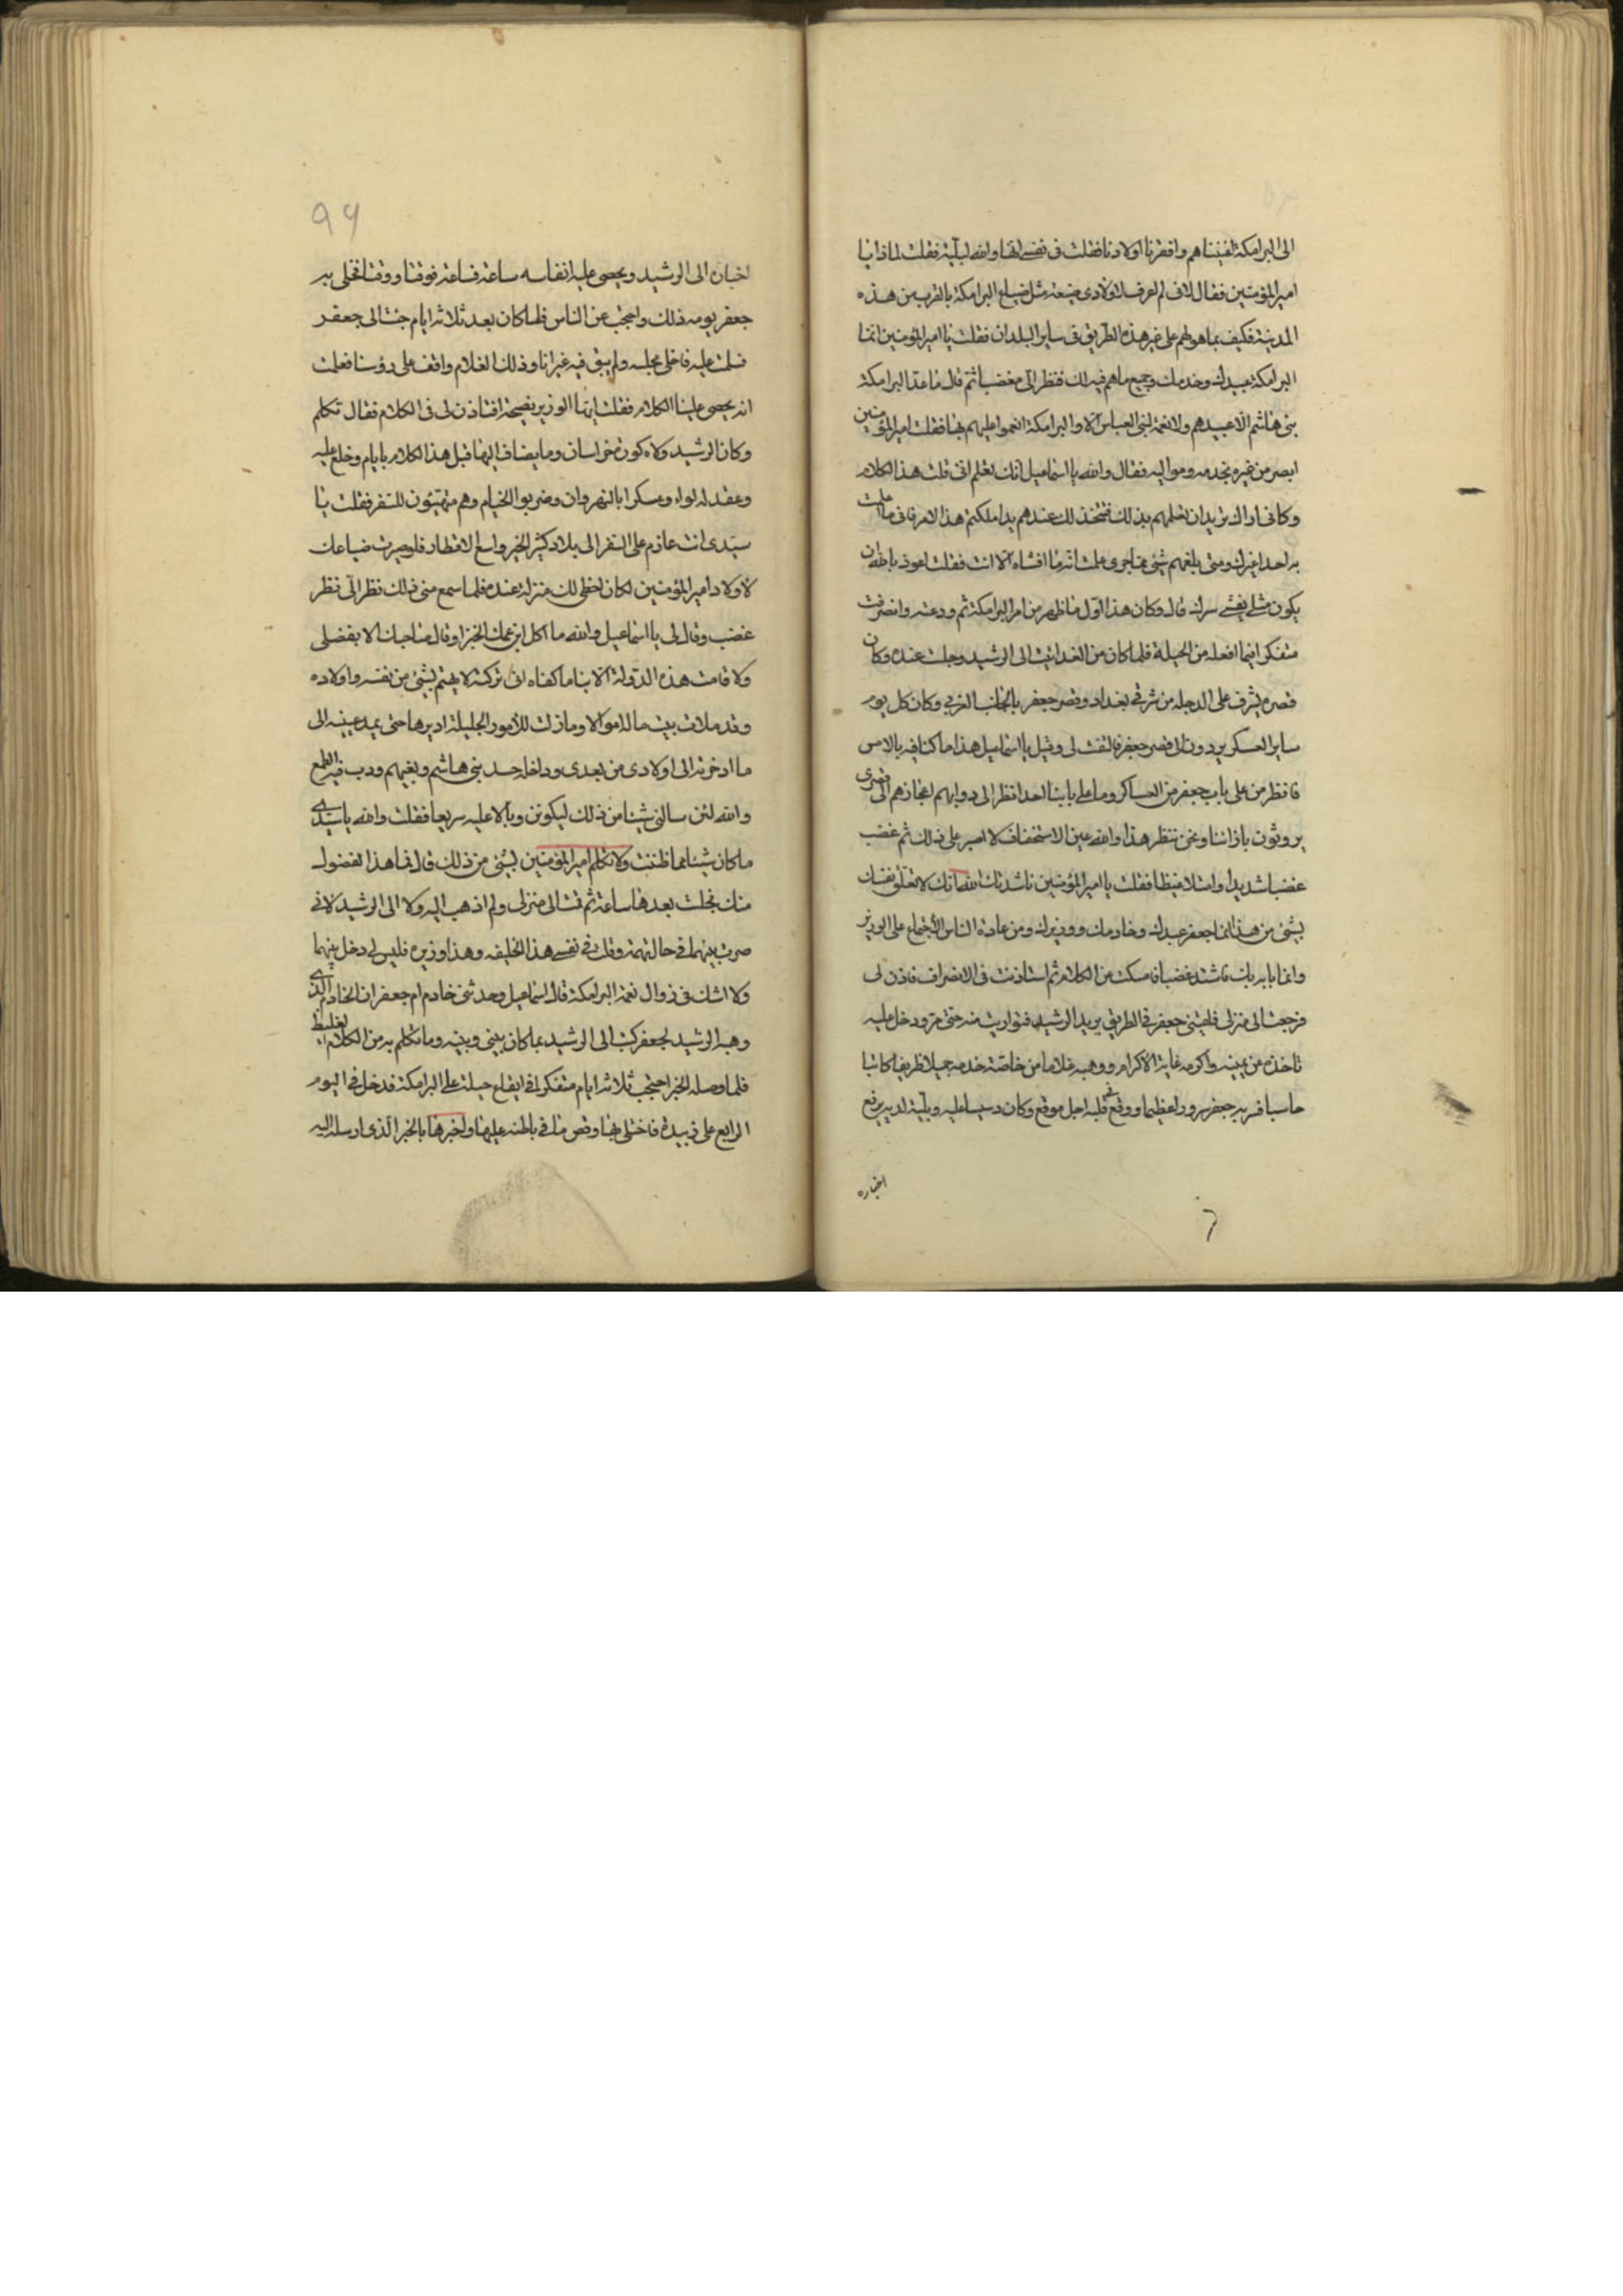 الى البرامكة اغنيناهم وافقرنا اولادنا فقلت فى نفسى انها والله لبلية فقلت لماذا يا
امير المؤمنين فقال لانى لم اعرف لاولادى ضيعة مثل ضياع البرامكة بالقرب من هذه
المدينة فكيف بما هو لهم على غير هذه الطريق فى ساير البلدان فقلت يا امير المؤمنين انما
البرامكة عبيدك وخدمك وجميع ماهم فيه لك فنظر الىّ مغضبا ثم قال ما عدّا البرامكة
بنى هاشم الّا عبيدهم ولا نعمة لبنى العباس الّا والبرامكة انعموا عليهم بها فقلت امير المؤمنين
ابصر من غيره بخدمه ومواليه فقال والله يا اسماعيل انك تعلم انى قلت هذا الكلام
وكانى اراك تريد ان تعلمهم بذلك فتتخذ لك عندهم يدا ملكيتم هذا الامر فانى ما اعلمت
به احدا غيرك ومتى بلغهم شيئ مما جرى علمت انه ما افشاه الّا انت فقلت اعوذ بالله ان
يكون مثلى يفشى سرك قال وكان هذا اوّل ما ظهر من امر البرامكة ثم ودعته وانصرفت
متفكرا فيما افعله من الحيلة فلما كان من الغد اتيت الى الرشيد وجلست عنده وكان
قصره يشرف على الدجله من شرقى بغداد وقصر جعفر بالجانب الغربي وكان كل يوم
ساير العسكر يردون الى قصر جعفر فالتفت لى وقيل يا اسماعيل هذا ما كنا فيه بالامس
فانظر من على باب جعفر من العساكر وما على بابنا احد انظر الى دوابهم اعجازهم الى قصرى
يروثون باذائنا ونحن ننظر هذا والله عين الاستخفاف لا اصبر على ذلك ثم غضب
غضبا شديدا وامتلا غيظا فقلت يا امير المؤمنين ناشدتك الله انك لا تعلق نفسك
بشئ من هذا انما جعفر عبدك وخادمك ووزيرك ومن عادة الناس الأجتماع على الوزير
وانما بابه بابك فاشتد غضبا فامسكت عن الكلام ثم استاذنت فى الانصراف فاذن لى
فرجعت الى منزلى فلقينى جعفر فى الطريق يريد الرشيد فتواريت منه حتى مر ودخل عليه
فاخذه عن يمينه واكرمه غاية الاكرام ووهبه غلاما من خاصّة خدمه جميلا ظريفا كاتبا
حاسبا فسر به جعفر سرورا عظيما ووقع فى قلبه اجل موقع وكان دسيسا عليه وبليّة لديه يرفع
اخباره
99
اخباره الى الرشيد ويحصى عليه انفاسه ساعة فساعة فوقتا ووقتا فتخلى به
جعفر يومه ذلك واحتجب عن الناس فلما كان بعد ثلاثة ايام جئت الى جعفر
فسلمت عليه فاخلى مجلسه ولم يبق فيه غير انا وذلك الغلام واقف على رؤسنا فعلمت
انه يحصى علينا الكلام فقلت ايها الوزير نصيحة افتاذن لى فى الكلام فقال تكلم
وكان الرشيد ولاه كورة خراسان وما يضاف اليها قبل هذا الكلام بايام وخلع عليه
وعقد له لواء وعسكرا بالنهروان وضربوا الخيام وهم متهيّئون للسفر فقلت يا
سيّدى انت عازم على السفر الى بلاد كثير الخير واسع الاقطار فلو صيرت ضياعك
لأولاد امير المؤمنين لكان احظى لك منزلة عنده فلما سمع منى ذلك نظر الىّ نظر
غضب وقال لى يا اسماعيل والله ما اكل ابن عمك الخبز او قال صاحبك الا بفضلى
ولا قامت هذه الدّولة الّا بنا ما كفاه انى تركته لا يهتم بشئ من نفسه واولاده
وقد ملات بيت ماله اموالا وما زلت للأمور الجليلة اديرها حتى يمد عينيه الى
ما ادخرته الى اولادى من بعدى وداخله حسد بنى هاشم وبغيهم ودب فيه الطمع
والله لئن سالنى شيئا من ذلك ليكونن وبالا عليه سريعا فقلت والله يا سيّدى
ما كان شيئا مما ظننت ولا تكلم امير المؤمنين بشئ من ذلك قال فما هذا الفضول
منك فجلست بعدها ساعة ثم قمت الى منزلى ولم اذهب اليه ولا الى الرشيد لانى
صرت بينهما فى حالة تهمة وقلت فى نفسى هذا الخليفه وهذا وزيره فليس لى دخل بينهما
ولا اشك فى زوال نعمة البرامكة قال اسماعيل وحدثنى خادم ام جعفر ان الخادم الّذى
وهبه الرشيد لجعفر كتب الى الرشيد بما كان بينى وبينه وما تكلم به من الكلام الغليظ
فلما وصله الخبر احتجب ثلاثة ايام متفكرا فى ايقاع حيلة على البرامكة فدخل فى اليوم
الرابع على زبيدة فاختلى بها وقص ما فى باطنه عليها واخبرها بالخبر الّذى ارسله اليه